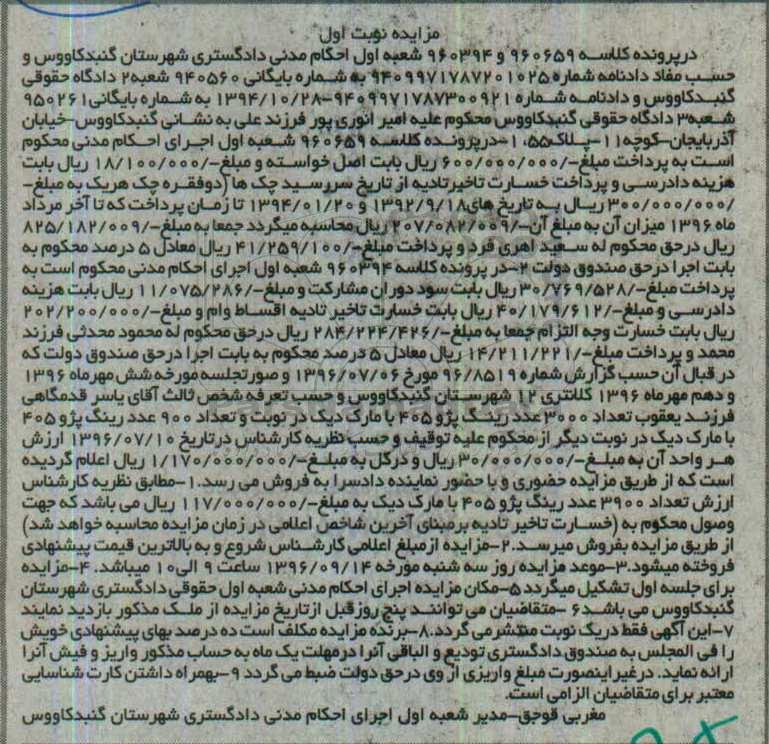 مزایده نوبت اول
درپرونده کلاسه ۹۶۰۶۵۹ و ۹۶۰۳۹۴ شعبه اول احکام مدنی دادگستری شهرستان گنبدکاووس و
حسب مفاد دادنامه شماره ۹۴۰۹۹۷۱۷۸۷۲۰۱۰۲۵ به شماره بایگانی ۹۴۰۵۶۰ شعبه۲ دادگاه حقوقی
گنبدکاووس و دادنامه شماره ۹۴۰۹۹۷۱۷۸۷۳۰۰۹۲۱-۱۳۹۴/۱۰/۲۸ به شماره بایگانی۹۵۰۲۶۱
شعبه۳ دادگاه حقوقی گنبدکاووس محکوم علیه امیر انوری پور فرزند علی به نشانی گنبدکاووس-خیابان
آذربایجان-کوچه۱۱-پلاک۵۵-۱درپرونده کلاسه ۹۶۰۶۵۹ شعبه اول اجرای احکام مدنی محکوم
است به پرداخت مبلغ-/۶۰۰/۰۰۰/۰۰۰ ریال بابت اصل خواسته و مبلغ-/۱۸/۱۰۰/۰۰۰ ریال بابت
هزینه دادرسی و پرداخت خسارت تاخیرتادیه از تاریخ سررسید چک ها (دوفقره چک هریک به مبلغ-
/۳۰۰/۰۰۰/۰۰۰ ریال به تاریخ های۱۳۹۲/۹/۱۸ و ۱۳۹۴/۰۱/۲۰ تا زمان پرداخت که تا آخر مرداد
ماه ۱۳۹۶ میزان آن به مبلغ آن-/۲۰۷/۰۸۲/۰۰۹ ریال محاسبه میگردد جمعا به مبلغ-/۸۲۵/۱۸۲/۰۰۹
ریال درحق محکوم له سعید اهری فرد و پرداخت مبلغ-/۴۱/۲۵۹/۱۰۰ ریال معادل ۵ درصد محکوم به
بابت اجرا درحق صندوق دولت ۲-در پرونده کلاسه ۹۶۰۳۹۴ شعبه اول اجرای احکام مدنی محکوم است به
پرداخت مبلغ-/۳۰/۷۶۹/۵۲۸ ریال بابت سود دوران مشارکت و مبلغ-/۱۱/۰۷۵/۲۸۶ ریال بابت هزینه
دادرسی و مبلغ-/۴۰/۱۷۹/۶۱۲ ریال بابت خسارت تاخیر تادیه اقساط وام و مبلغ-/۲۰۲/۲۰۰/۰۰۰
ریال بابت خسارت وجه التزام جمعا به مبلغ-/۲۸۴/۲۲۴/۴۲۶ ریال درحق محکوم له محمود محدثی فرزند
محمد و پرداخت مبلغ-/۱۴/۲۱۱/۲۲۱ ریال معادل ۵ درصد محکوم به بابت اجرا درحق صندوق دولت که
در قبال آن حسب گزارش شماره ۹۶/۸۵۱۹ مورخ ۱۳۹۶/۰۷/۰۶ و صورتجلسه مورخه شش مهرماه ۱۳۹۶
و دهم مهرماه ۱۳۹۶ کلانتری ۱۲ شهرستان گنبدکاووس و حسب تعرفه شخص ثالث آقای یاسر قدمگاهی
فرزند یعقوب تعداد ۳۰۰۰ عدد رینگ پژو ۴۰۵ با مارک دیک در نوبت و تعداد ۹۰۰ عدد رینگ پژو ۴۰۵
با مارک دیک در نوبت دیگر از محکوم علیه توقیف و حسب نظریه کارشناس درتاریخ ۱۳۹۶/۰۷/۱۰ ارزش
هر واحد آن به مبلغ-/۳۰/۰۰۰/۰۰۰ ریال و درکل به مبلغ-/۱/۱۷۰/۰۰۰/۰۰۰ ریال اعلام گردیده
است که از طریق مزایده حضوری و با حضور نماینده دادسرا به فروش می رسد.۱-مطابق نظریه کارشناس
ارزش تعداد ۳۹۰۰ عدد رینگ پژو ۴۰۵ با مارک دیک به مبلغ-/۱۱۷/۰۰۰/۰۰۰ ریال می باشد که جهت
وصول محکوم به (خسارت تاخیر تادیه برمبنای آخرین شاخص اعلامی در زمان مزایده محاسبه خواهد شد)
از طریق مزایده بفروش میرسد.۲-مزایده ازمبلغ اعلامی کارشناس شروع و به بالاترین قیمت پیشنهادی
فروخته میشود.۳-موعد مزایده روز سه شنبه مورخه ۱۳۹۶/۰۹/۱۴ ساعت ۹ الی۱۰ میباشد. ۴-مزایده
برای جلسه اول تشکیل میگردد ۵-مکان مزایده اجرای احکام مدنی شعبه اول حقوقی دادگستری شهرستان
گنبدکاووس می باشد۶ -متقاضیان می توانند پنج روزقبل ازتاریخ مزایده از ملک مذکور بازدید نمایند
۷-این آگهی فقط دریک نوبت منتشرمی گردد.۸-برنده مزایده مکلف است ده درصد بهای پیشنهادی خویش
را فی المجلس به صندوق دادگستری تودیع و الباقی آنرا درمهلت یک ماه به حساب مذکور واریز و فیش آنرا
ارائه نماید. درغیراینصورت مبلغ واریزی از وی درحق دولت ضبط می گردد ۹-بهمراه داشتن کارت شناسایی
معتبر برای متقاضیان الزامی است.
مغربی قوجق-مدیر شعبه اول اجرای احکام مدنی دادگستری شهرستان گنبدکاووس